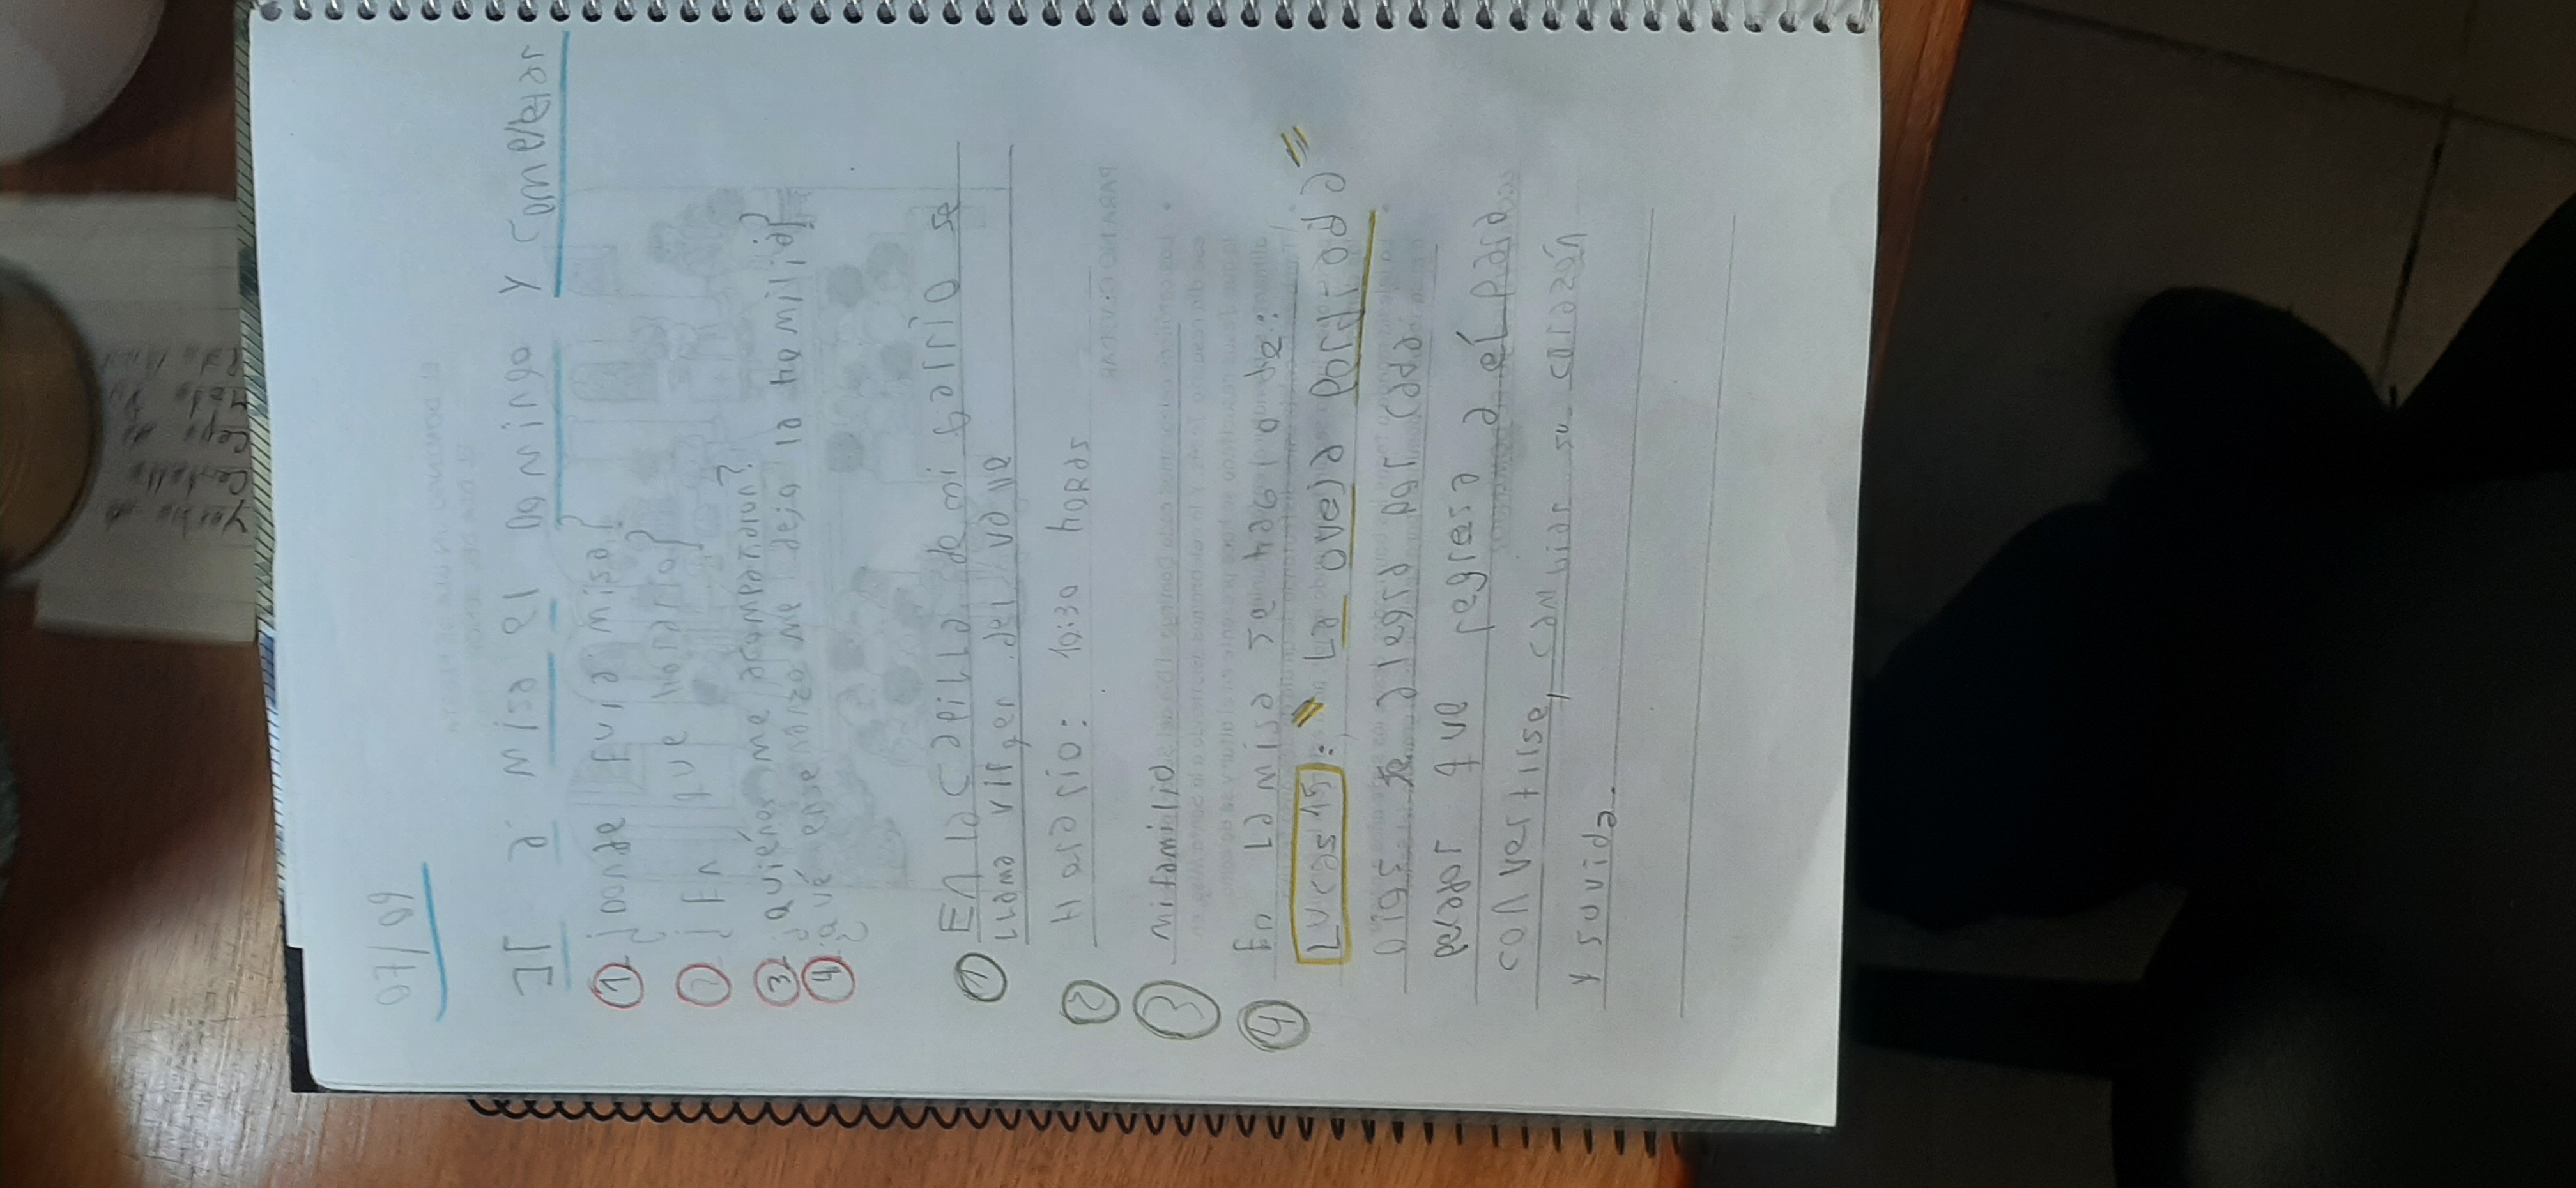 07/09
Ir a misa el Domingo y Comelbar
1 ¿Donde fui a misa?
2 ¿En que horario?
3 ¿Quiénes me acompañaron?
4 ¿Qué enseñanza me dejo la familia?
1 En la Capilla de mi barrio se
llama virgen del valle
2 Horario: 10:30 horas
3 mi familia
4 En la misa se habló de:
Lucas 15: "La oveja perdida"
Dios se alegra por cada
pecador que regresa a él para
convertirse, cambiar su corazón
y su vida.